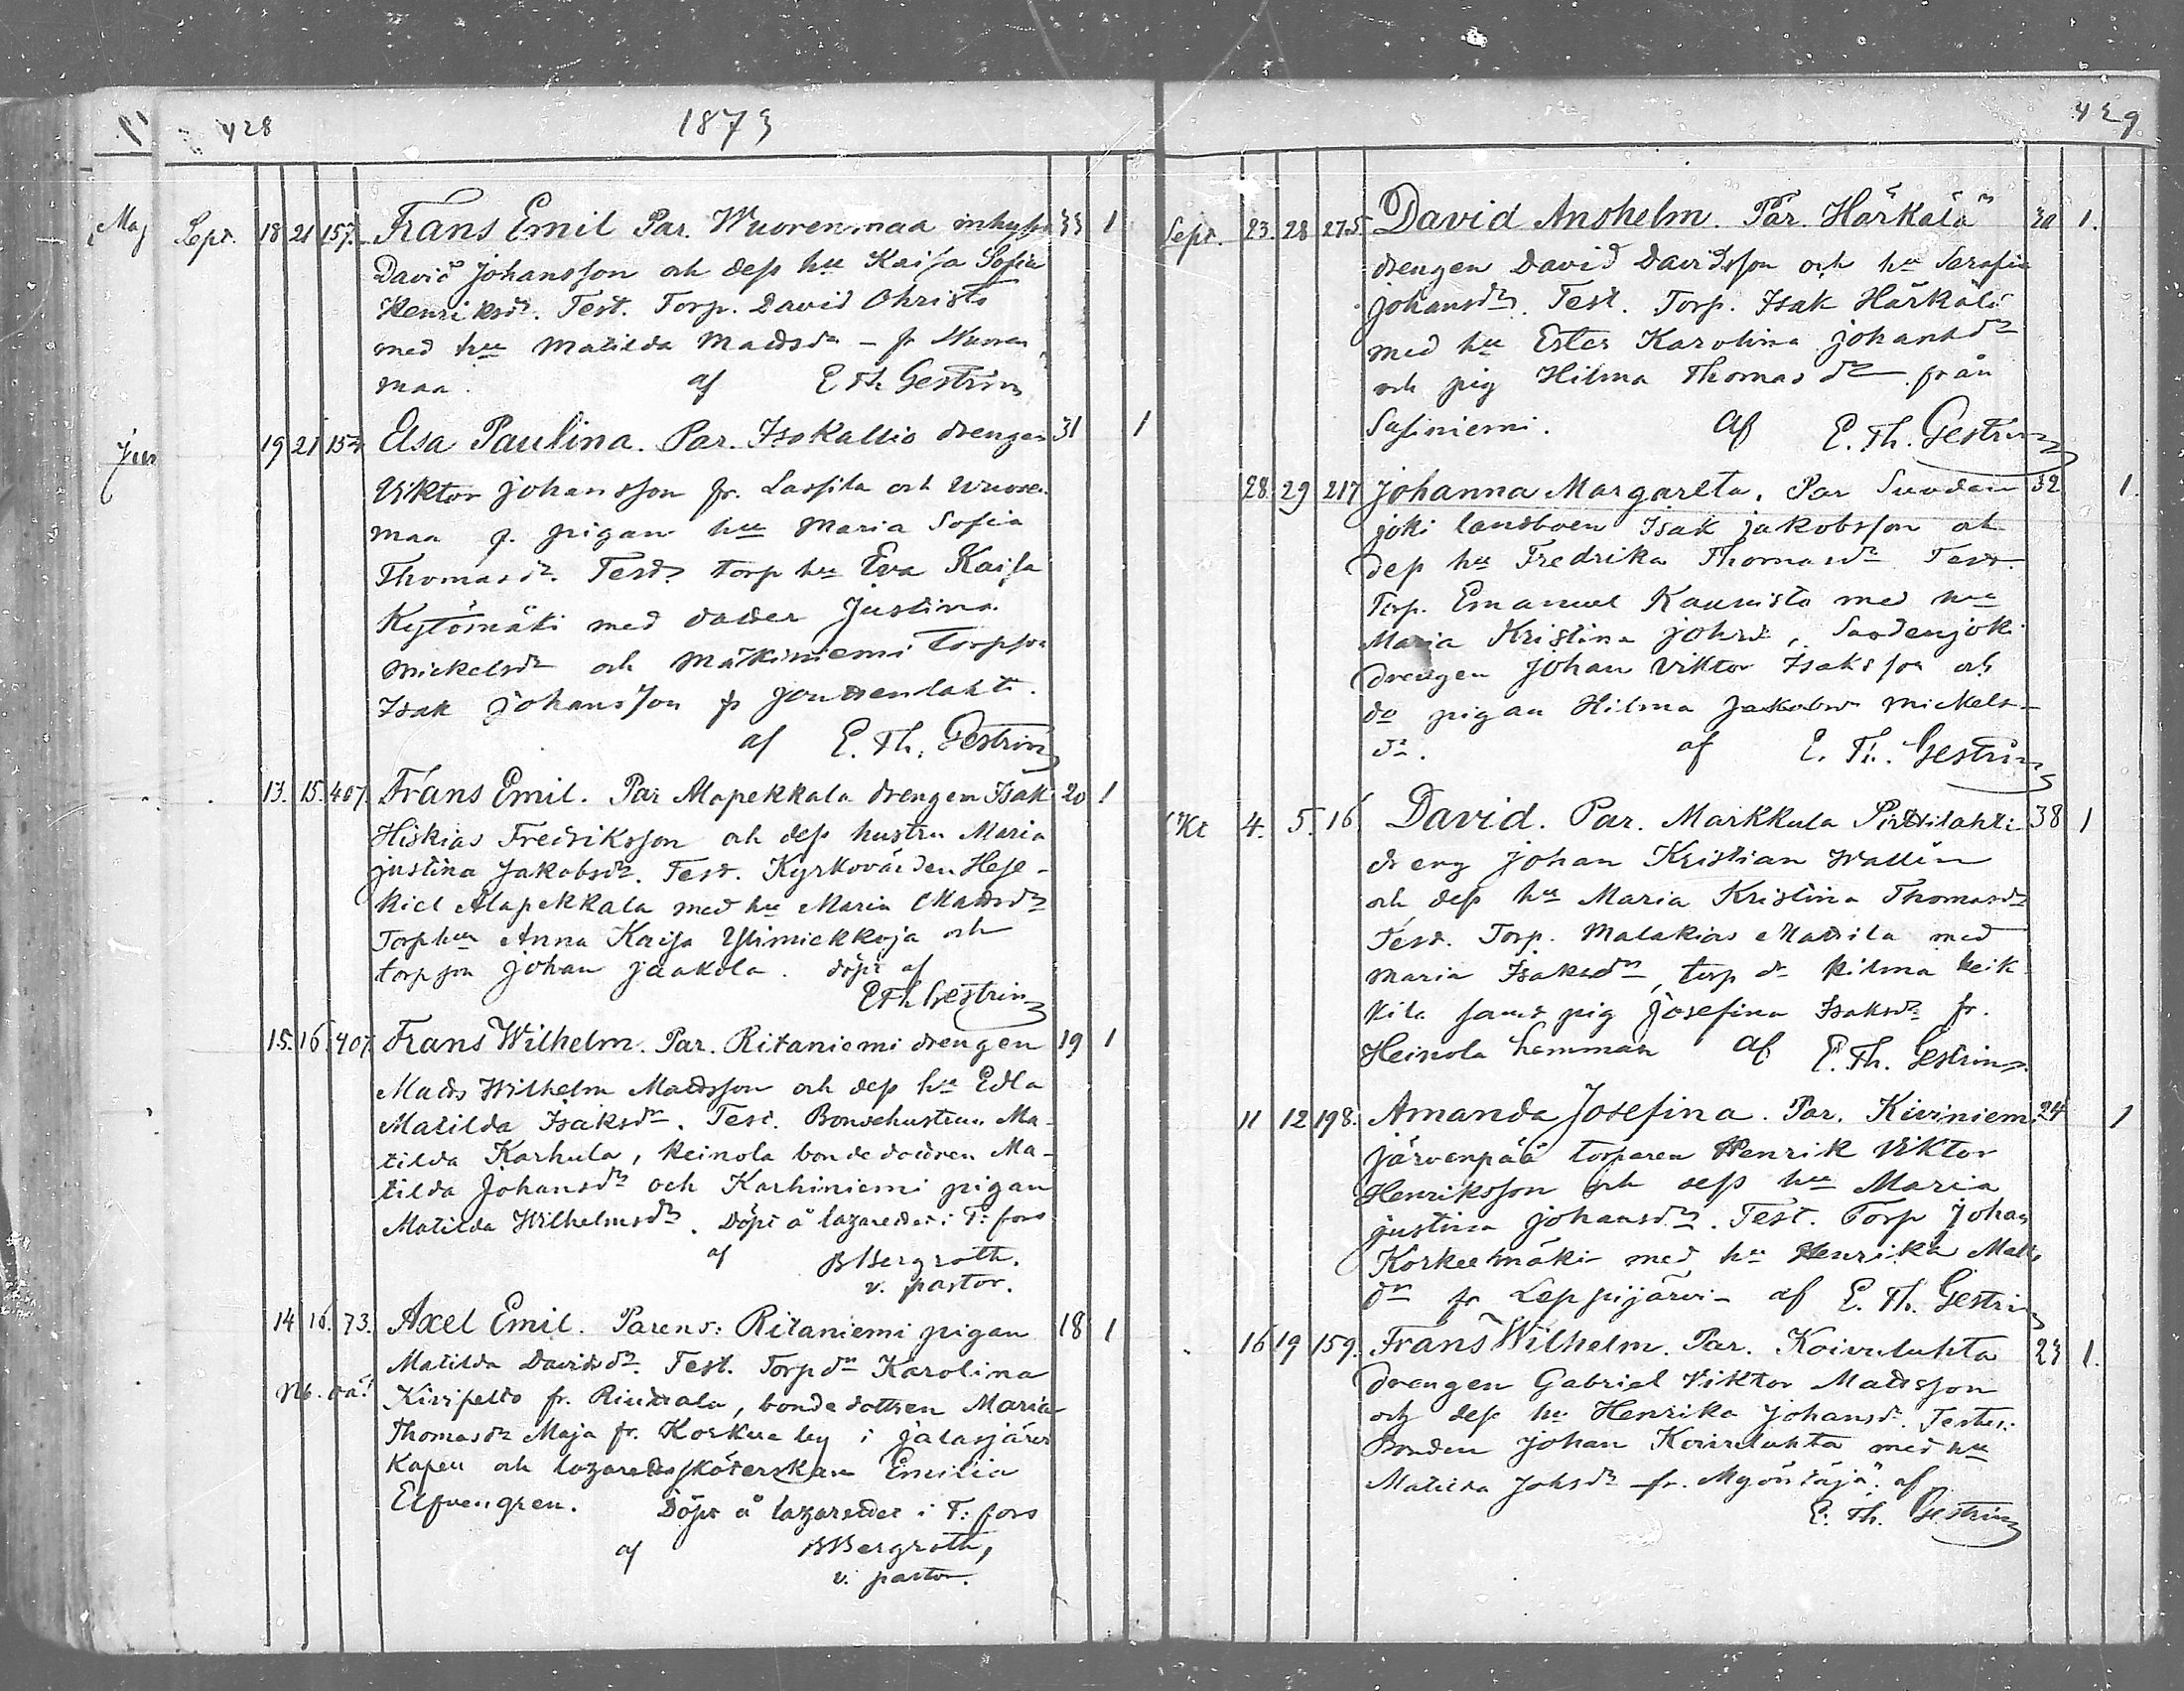 428
1873
Maj
Juni
Sept. 18 21 157. Frans Emil Par. Wuorenmaa inhyses 33 1
David Johansson och dess hu Kaisa Sofia
Henriksdr. Test. Torp. David Christo
med hu Matilda Mattsdr - fr Wuoren
maa. af E Th Gestrin
19 21 157 Elsa Paulina. Par. Isokallio drengen 31 1
Viktor Johansson fr. Lassila och Wuoren
maa pigan hu Maria Sofia
Thomasdr. Test. torp hu Eva Kaisa
Kytömäki med dotter Justina
Mickelsdr och Mäkiniemi torpson
Isak Johansson fr Jouttenlahti.
af E. Th. Gestrin
13. 15. 407. Frans Emil. Par Alapekkala drengen Isak 20 1
Hiskias Fredriksson och dess hustru Maria
Justina Jakobsdr. Test. Kyrkovärden Hese-
kiel Alapekkala med hu Maria Mattsdr
Torp hu Anna Kaisa Ylimickkoja och
torpson Johan Jaakola. döpt af
E Th Gestrin
15. 16. 407 Frans Wilhelm. Par. Ritaniemi drengen 19 1
Matts Wilhelm Mattsson och dess hu Edla
Matilda Isaksdr. Test. Bondehustrun Ma-
tilda Karhula, Heinola bonde dottren Ma-
tilda Johansdr och Karhiniemi pigan
Matilda Wilhelmsdr. Döpt å lazarettet i T:fors
af B Bergroth.
v. pastor.
14 16. 73. Axel Emil. Parens: Ritaniemi pigan 18 1
Matilda Davidsdr. Test. Torpdr Karolina
Nb. oä! Kivipelto fr. Rinttala, bonde dottren Maria
Thomasdr Maja fr. Koskue by i Jalasjärvi
Kapell och lazaretts sköterskan Emilia
Elfvengren. Döpt å lazarettet i T:fors
af B Bergroth,
v. pastor.
429
Sept. 23. 28 275. David Anshelm. Par. Härkälä 30 1.
drengen David Davidsson och hu Serafia
Johansdr. Test. Torp. Isak Härkälä
med hu Ester Karolina Johansdr
och pig Hilma Thomasdr från
Sasiniemi. af E. Th. Gestrin
28. 29 217 Johanna Margareta. Par Suoden 32 1.
joki landboen Isak Jakobsson och
dess hu Fredrika Thomasdr Test.
Torp. Emanuel Kaunisto med hu
Maria Kristina Johsdr, Suodenjoki
drengen Johan Viktor Isaksson och
do pigan Hilma Jakobsdr Mickels-
dr. af E. Th. Gestrin
Okt 4. 5. 16 David. Par. Markkula Pirttilahti 38 1
dreng Johan Kristian Wallin
och dess hu Maria Kristina Thomasdr
Test. Torp. Malakias Mattila med
Maria Isaksdr, torp dr Hilma Heik
kila samt pig Josefina Isaksdr fr.
Heinola hemman af E. Th. Gestrin
11 12 198. Amanda Josefina. Par. Kiviniemi 24 1
Järvenpää torparen Henrik Viktor
Henriksson och dess hu Maria
Justina Johansdr. Test. Torp Johan
Korkeemäki med hu Henrika Matts
dr fr Leppijärvi - af E. Th. Gestrin
16 19 159. Frans Wilhelm. Par. Koiviluhta 23 1.
drengen Gabriel Viktor Mattsson
och dess hu Henrika Johansdr. Testes:
Bonden Johan Koiviluhta med hu
Matilda Johsdr fr. Myöntäjä. af
E. Th. Gestrin